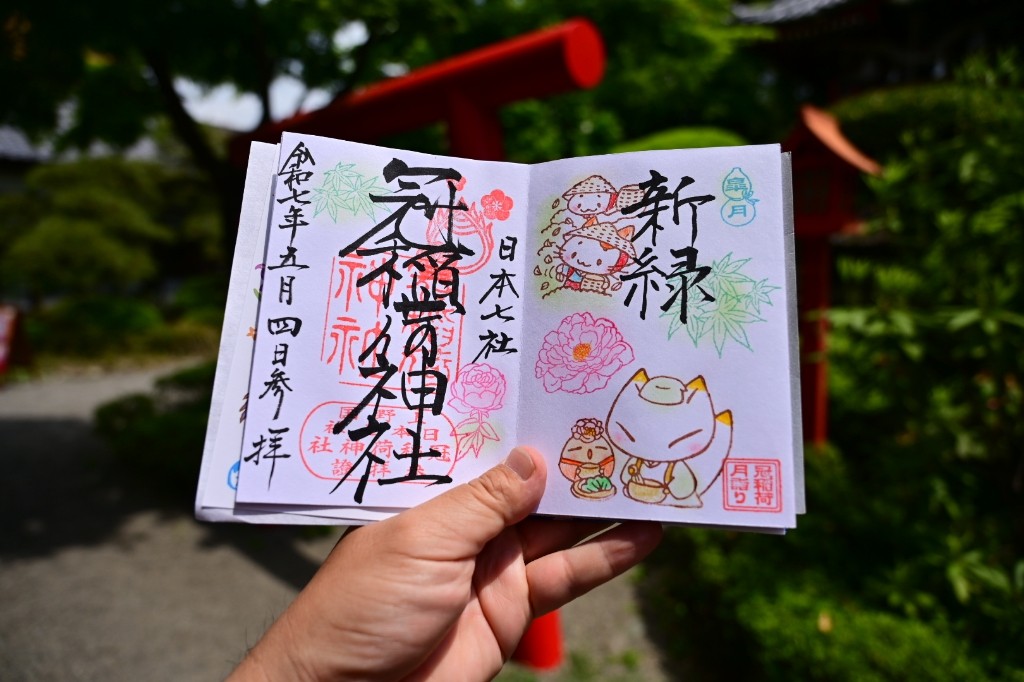 皐月
新緑
冠稲荷
月詣り
日本七社
冠稲荷神社
令和七年五月四日参拝